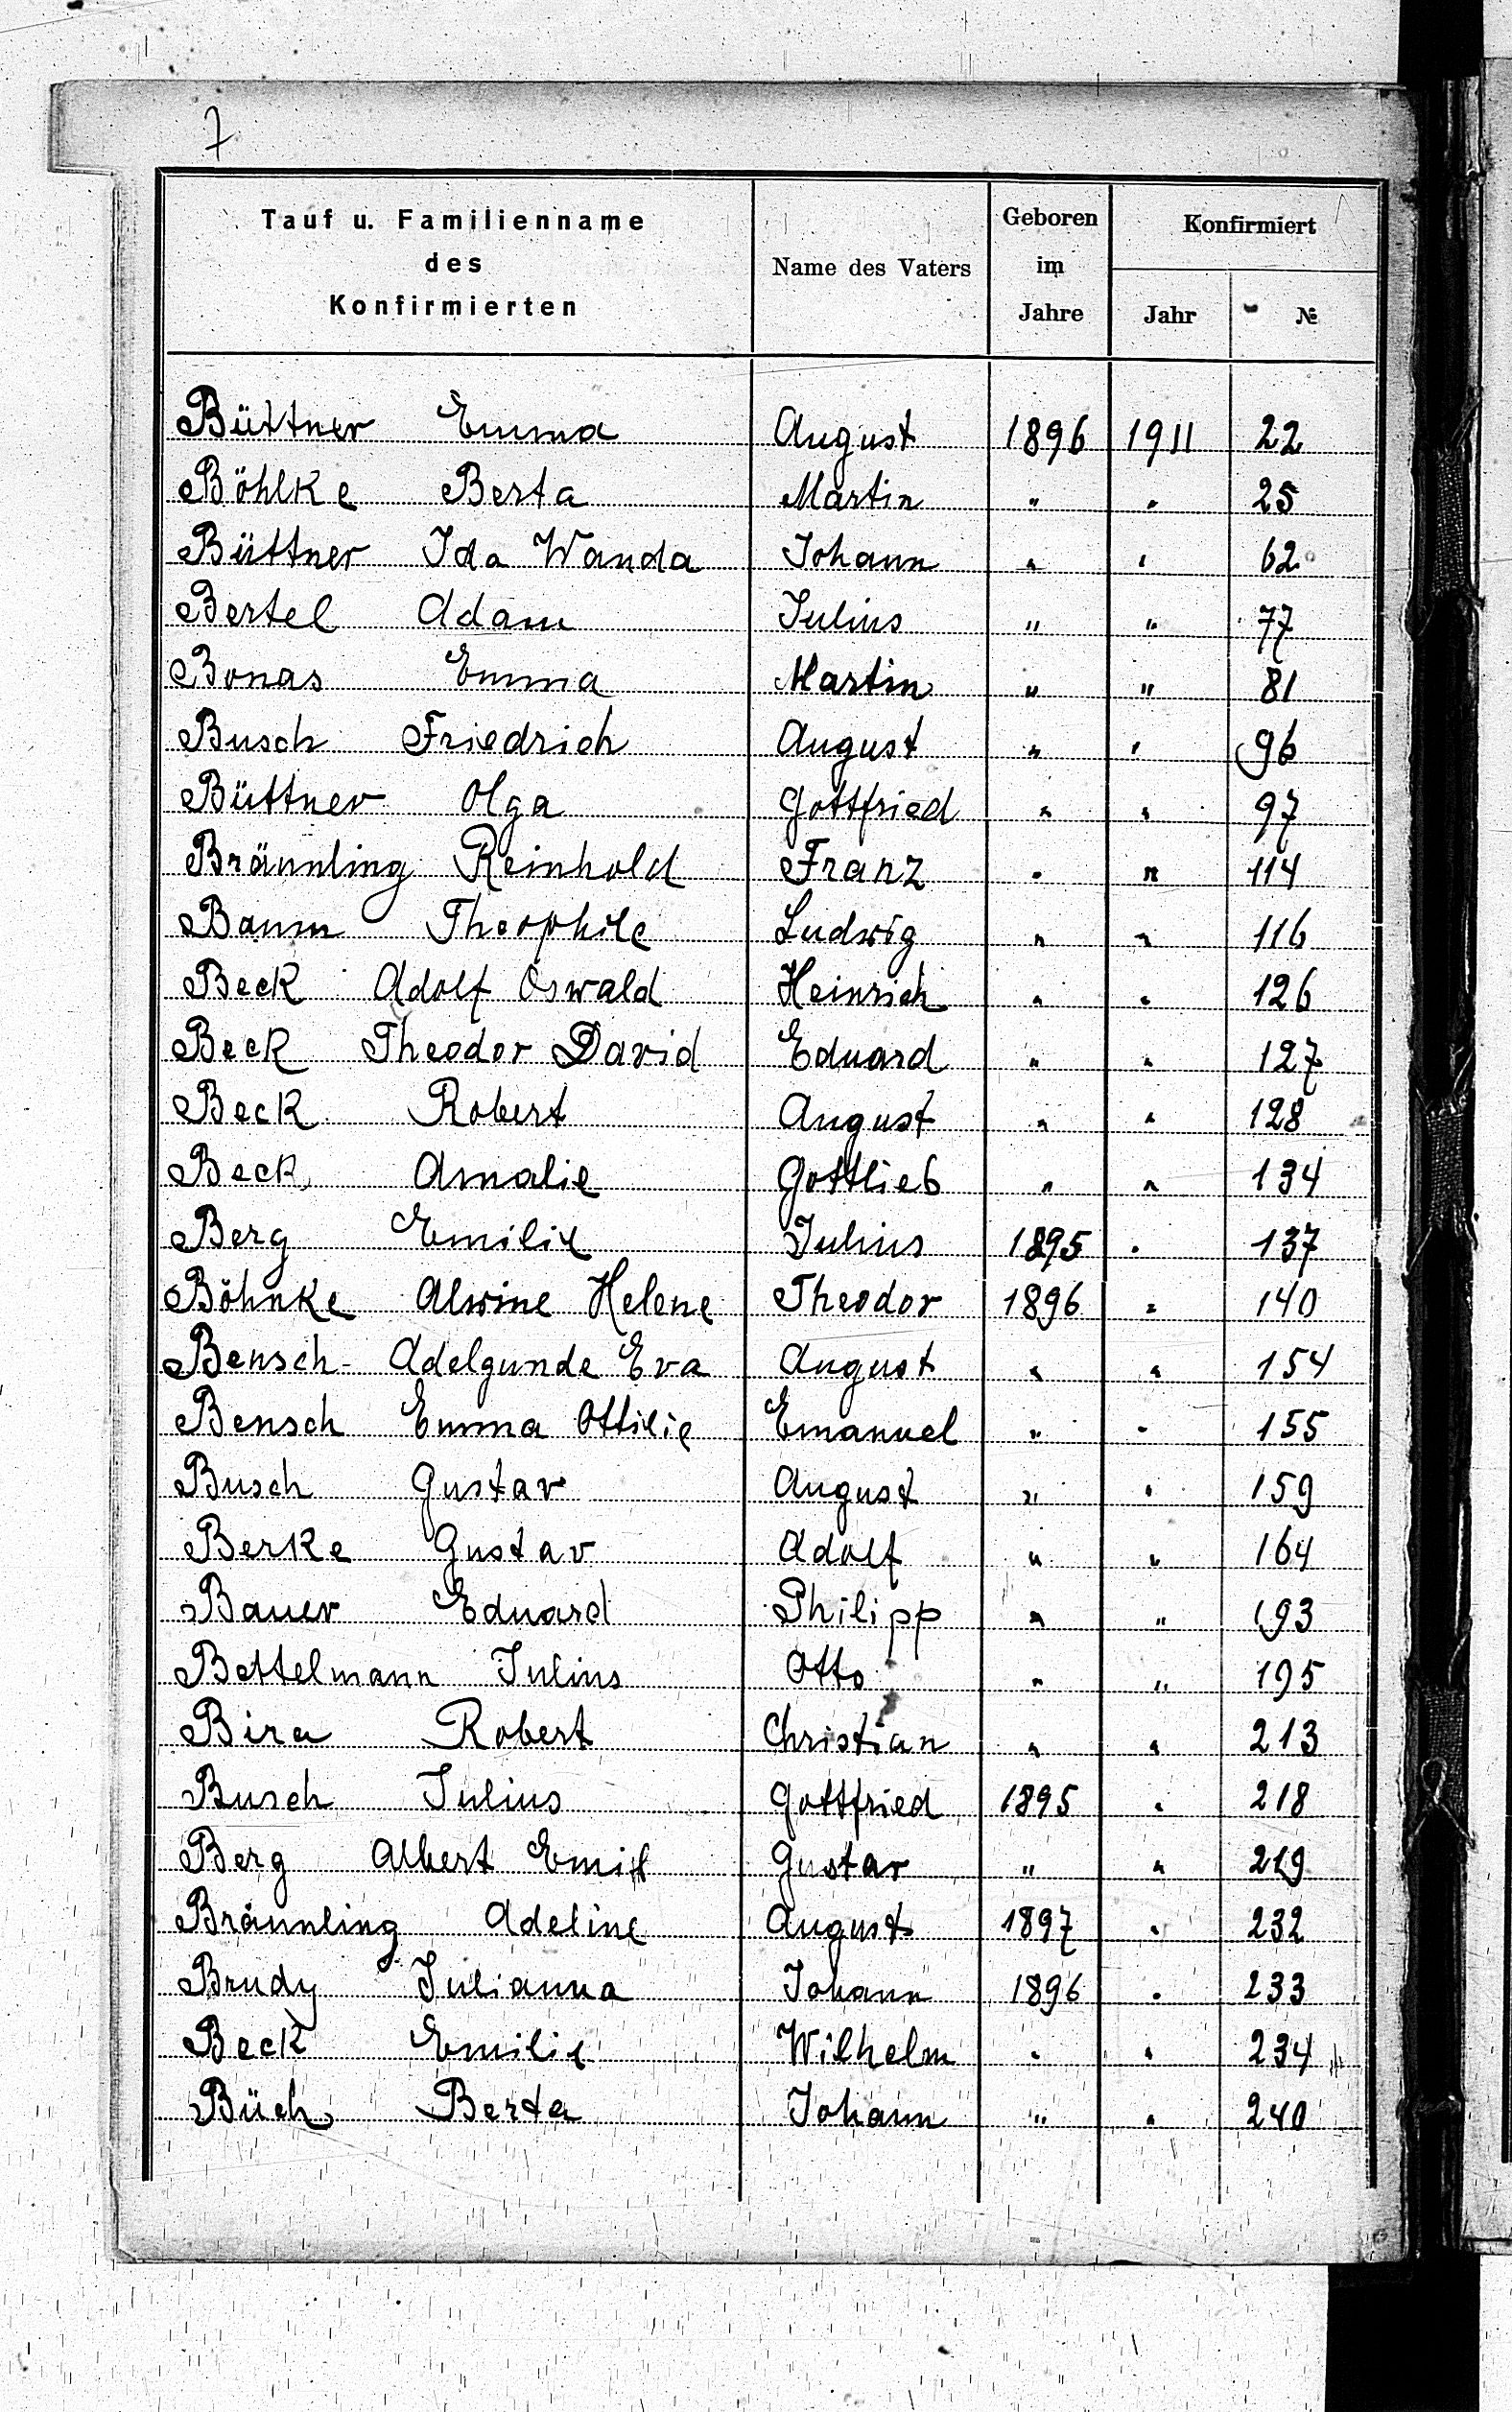 7
Tauf u. Familienname
des
Konfirmierten
Name des Vaters
Geboren
im
Jahre
Konfirmiert
Jahr
№
Büttner Emma August 1896 1911 22
Böhlke Berta Martin " " 25
Büttner Ida Wanda Johann " " 62
Bertel Adam Julius " " 77
Bonas Emma Martin " " 81
Busch Friedrich August " " 96
Büttner Olga Gottfried " " 97
Bräunling Reinhold Franz " " 114
Baum Theophile Ludwig " " 116
Beck Adolf Oswald Heinrich " " 126
Beck Theodor David Eduard " " 127
Beck Robert August " " 128
Beck Amalie Gottlieb " " 134
Berg Emilie Julius 1895 " 137
Böhnke Alwine Helene Theodor 1896 " 140
Bensch Adelgunde Eva August " " 154
Bensch Emma Ottilie Emanuel " " 155
Busch Gustav August " " 159
Berke Gustav Adolf " " 164
Bauer Eduard Philipp " " 193
Bettelmann Julius Otto " " 195
Bira Robert Christian " " 213
Busch Julius Gottfried 1895 " 218
Berg Albert Emil Gustav " " 219
Bräunling Adeline August 1897 " 232
Brudy Julianna Johann 1896 " 233
Beck Emilie Wilhelm " " 234
Büch Berta Johann " " 240